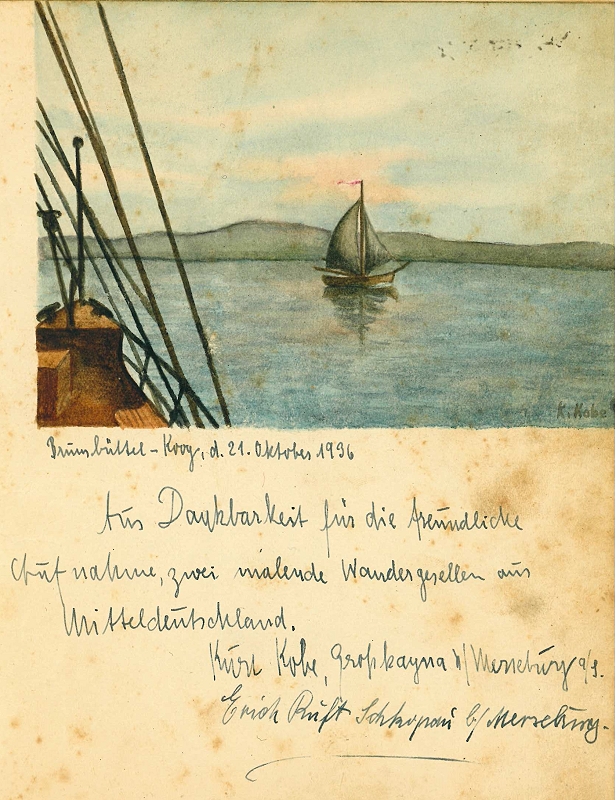 K. Kobe
Brunsbüttel-Koog, d. 21. Oktober 1936
Aus Dankbarkeit für die freundliche
Aufnahme, zwei malende Wandergesellen aus
Mitteldeutschland.
Kurt Kobe, Großkayna b/ Merseburg a/S.
Erich Ruft Schkopau b/ Merseburg.